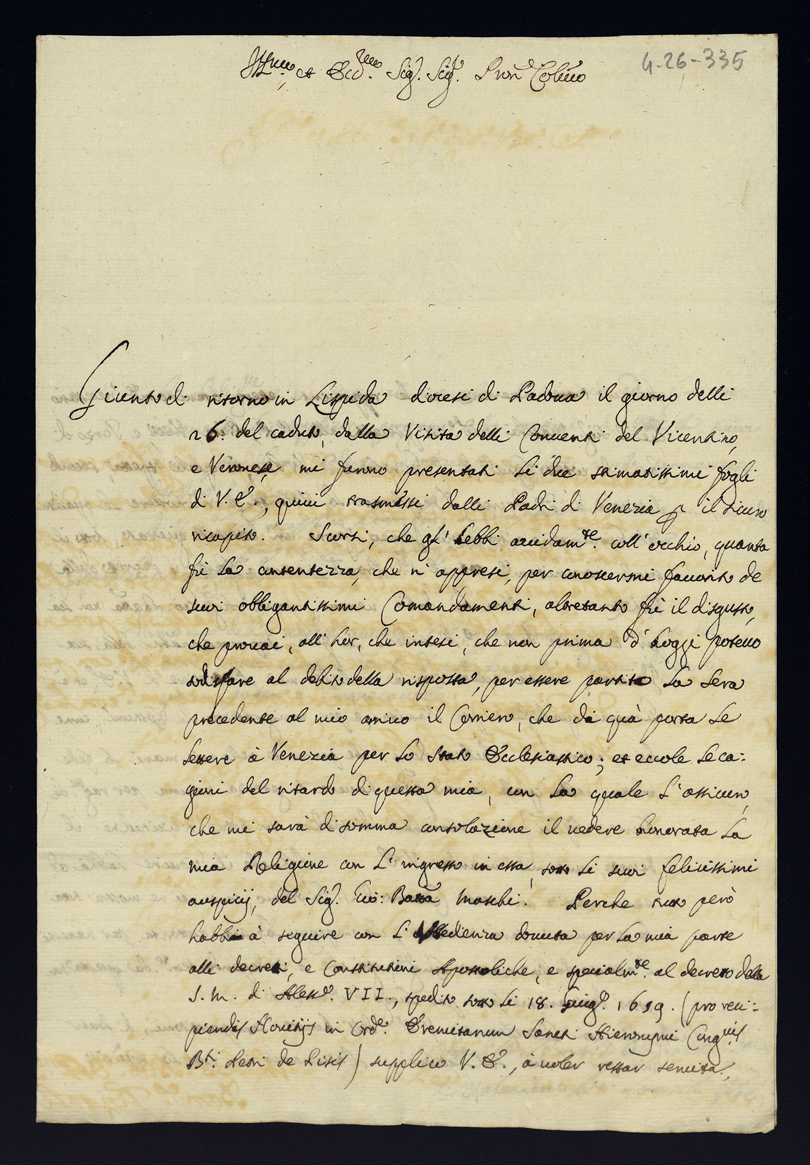 Ill.mo, et Ecc.mo Sig.r Sig.r Pron.e Col.mo
4-26-335
di ritorno in Lispida diocesi di Padova il giorno delli
26. del caduto, dalla Visita delli Conventi del Vicentino,
e Veronese mi furno presentati li due stimatissimi fogli
di V.E., quivi trasmessi dalli Padri di Venezia p il sicuro
ricapito. Scorsi, che gl' hebbi avidam.te coll' occhio, quanta
fù la contentezza, che n' appresi, per conoscermi favorito de
suoi obbligantissimi Comandamenti, altretanto fù il disgusto,
che provai, all' hor, che intesi, che non prima d' hoggi potevo
sodisfare al debito della risposta, per essere partito la sera
precedente al mio arrivo il Corriero, che da quà porta le
lettere à Venezia per lo Stato Ecclesiastico; et eccole le ca-
gioni del ritardo di questa mia, con la quale l' assicuro,
che mi sarà di somma consolazione il vedere honorata la
mia Religione con l' ingresso in essa, sotto li suoi felicissimi
auspicij, del Sig.r Gio: Batta Moschi. Perche tutto però
habbia à seguire con l' Obedienza dovuta per la mia parte
alli decreti, e Constitutioni Apostoliche, e specialm.te al decreto della
S. M. di Aless.o VII., spedito sotto li 18. Giug.o 1659. (pro reci-
piendis Novitijs in Ord.e Eremitarum Sancti Hieronymi Cong.nis
B.ti Petri de Pisis) supplico V.E., à voler restar servita,